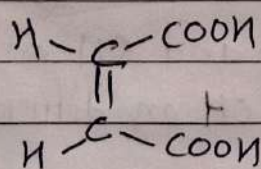 H C COOH
H
H C COOH